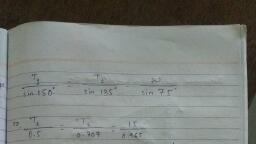 T₁/sin 150° = T₂/sin 135° = w/sin 75°
⇒ T₁/0.5 = T₂/0.707 = 15/0.965